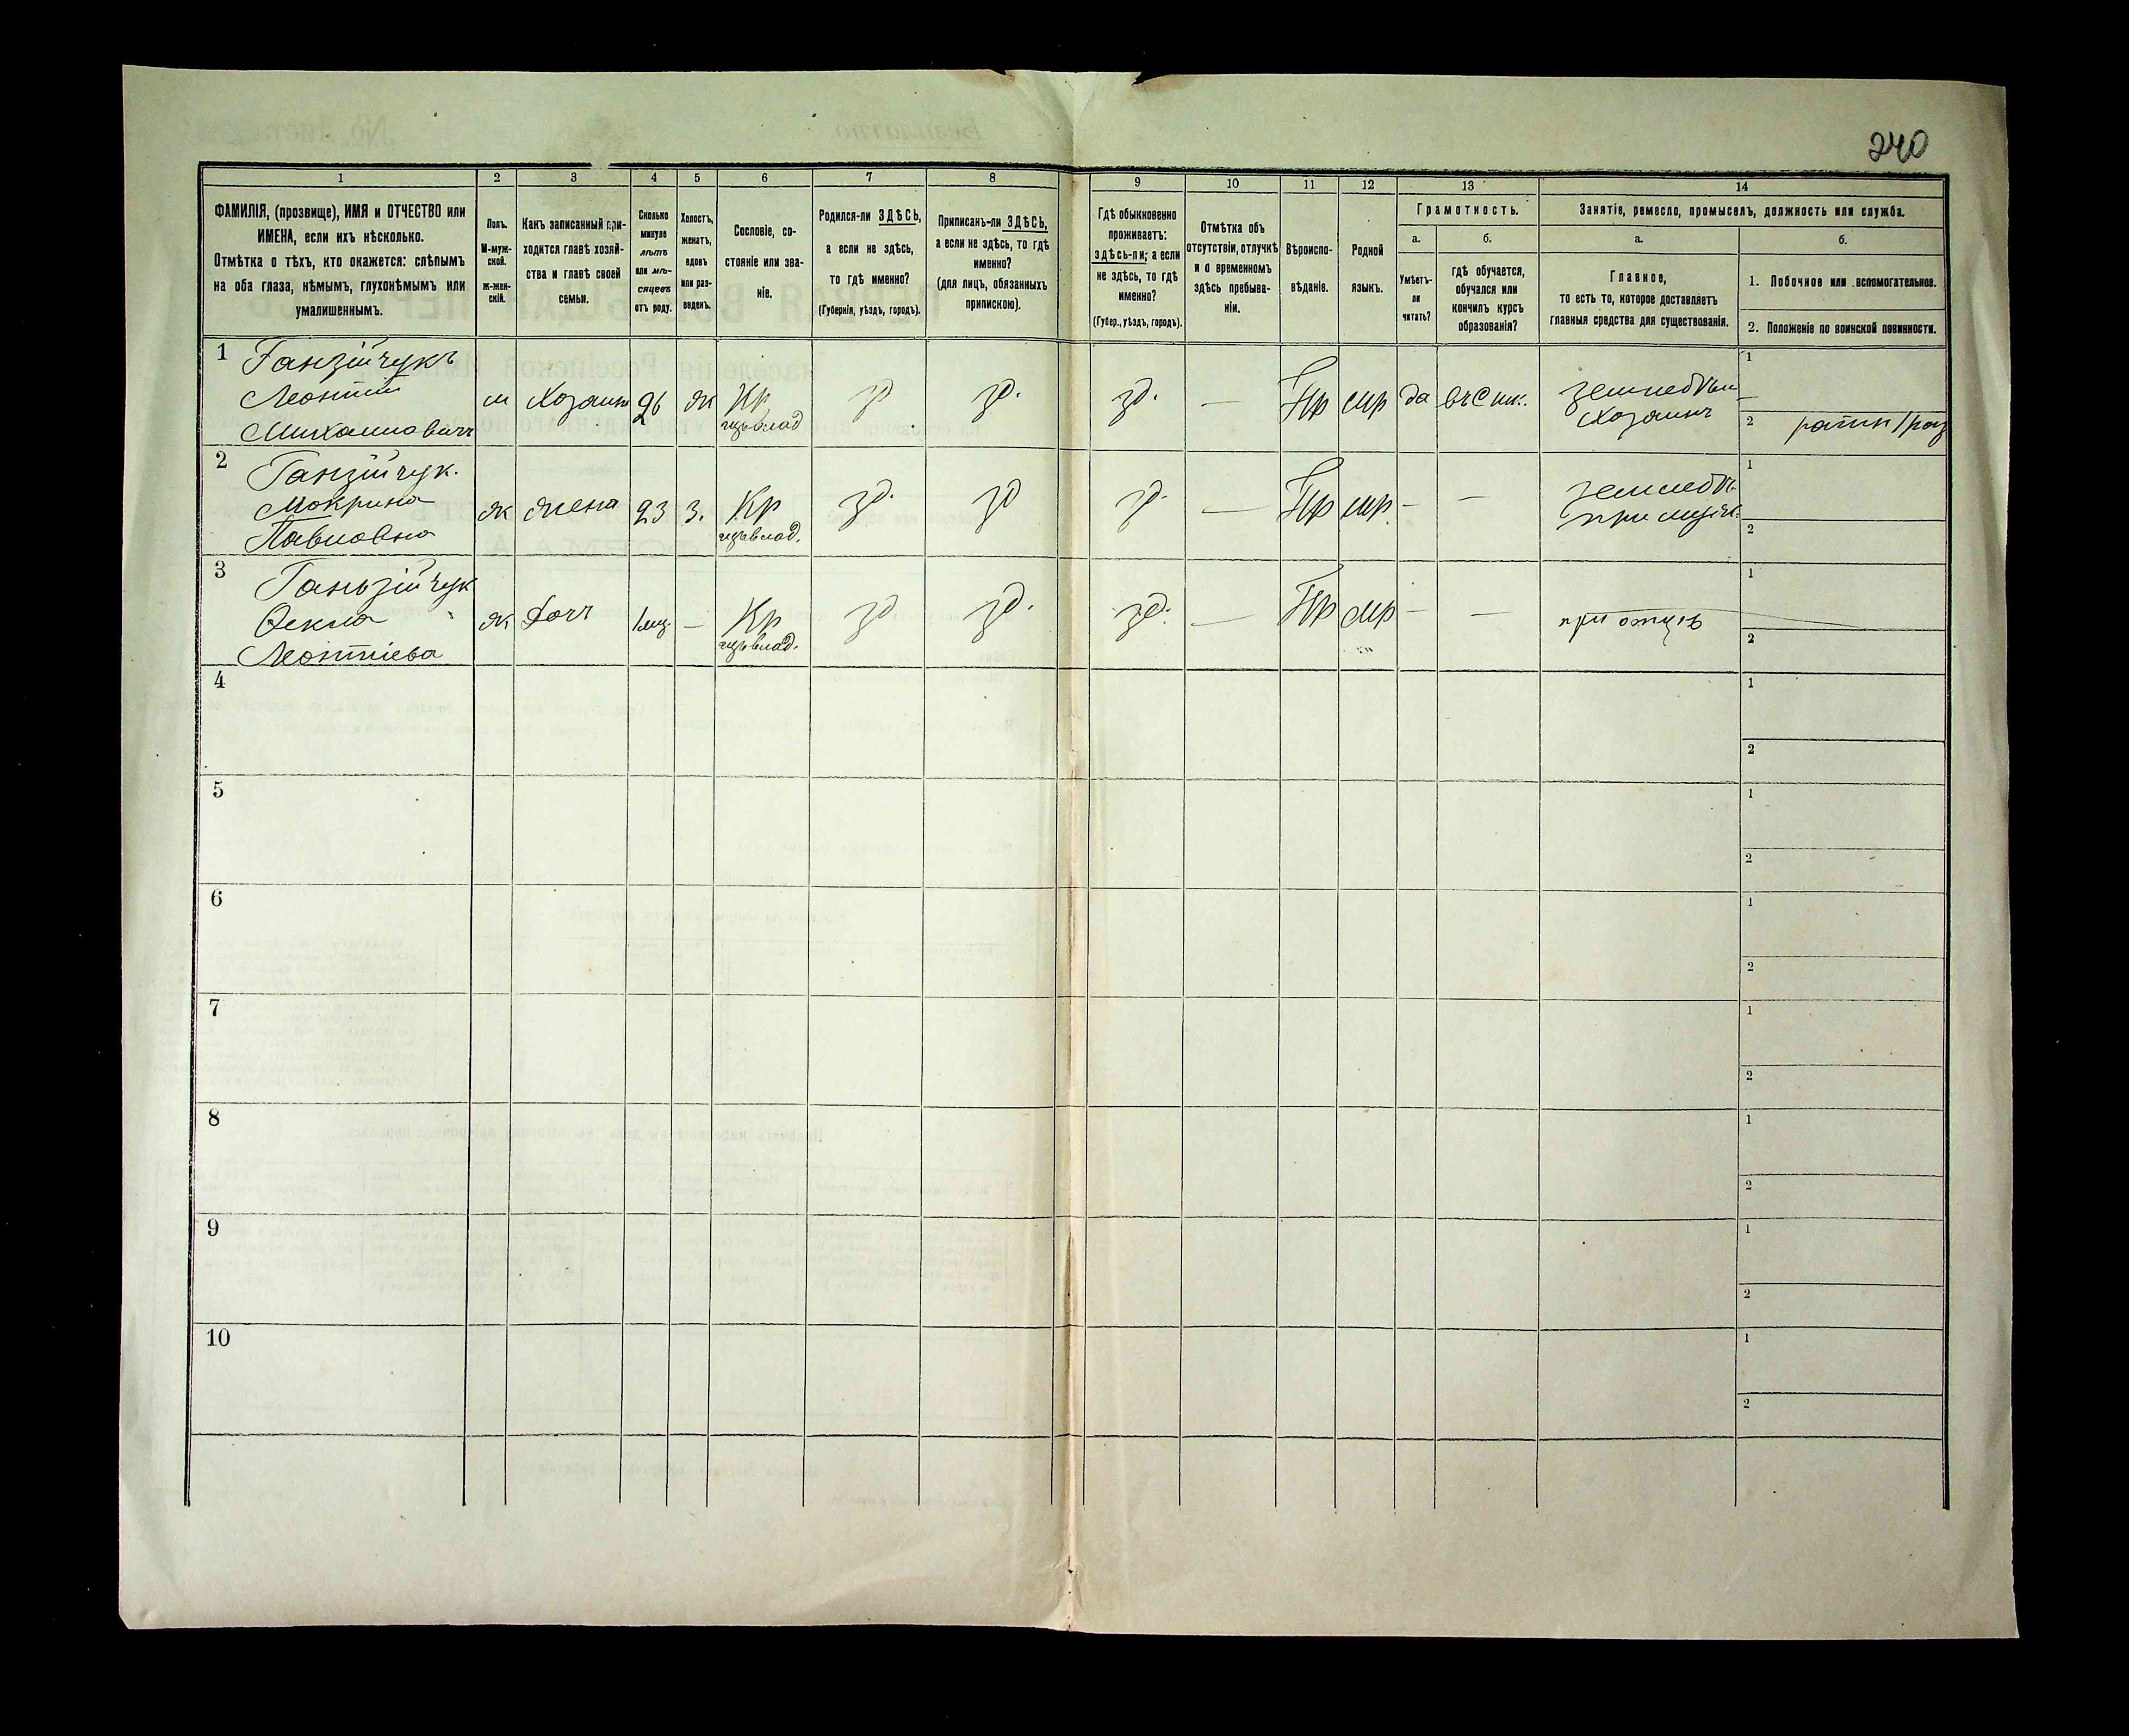 240
1 2 3 4 5 6 7 8 9 10 11 12 13 14
ФАМИЛІЯ, (прозвище), ИМЯ и ОТЧЕСТВО или
ИМЕНА, если ихъ нѣсколько.
Отмѣтка о тѣхъ, кто окажется: слѣпымъ
на оба глаза, нѣмымъ, глухонѣмымъ или
умалишеннымъ.
Полъ.
М-муж-
ской.
ж-жен-
скій.
Какъ записанный при-
ходится главѣ хозяй-
ства и главѣ своей
семьи.
Сколько
минуло
лѣтъ
или мѣ-
сяцевъ
отъ роду.
Холостъ,
женатъ,
вдовъ
или раз-
веденъ.
Сословіе, со-
стояніе или зва-
ніе.
Родился-ли ЗДѢСЬ,
а если не здѣсь,
то гдѣ именно?
(Губернія, уѣздъ, городъ).
Приписанъ-ли ЗДѢСЬ,
а если не здѣсь, то гдѣ
именно?
(для лицъ, обязанныхъ
припискою).
Гдѣ обыкновенно
проживаетъ:
здѣсь-ли; а если
не здѣсь, то гдѣ
именно?
(Губер., уѣздъ, городъ).
Отмѣтка объ
отсутствіи, отлучкѣ
и о временномъ
здѣсь пребыва-
ніи.
Вѣроиспо-
вѣданіе.
Родной
языкъ.
Грамотность.
а.
Умѣетъ-
ли
читать?
б.
гдѣ обучается,
обучался или
кончилъ курсъ
образованія?
Занятіе, ремесло, промыселъ, должность или служба.
а.
Главное,
то есть то, которое доставляетъ
главныя средства для существованія.
б.
1. Побочное или вспомогательное.
2. Положеніе по воинской повинности.
1 Ганзійчукъ
Леонтій
Михаиловичъ
м Хозяинъ 26 ж Кр
зд зд. зд. — Пр мр да
хозяинъ
1
2 ратн
2 Ганзійчук.
Мокрина
Павловна
ж жена 23 з. Кр
зд. зд зд. — Пр мр. — —
при мужѣ
1
2
3 Ганьзійчук
Фекла
Леонтіева
ж Дочь 1 мц. — Кр
зд зд. зд. — Пр мр — — при отцѣ
1
2
4
1
2
5
1
2
6
1
2
7
1
2
8
1
2
9
1
2
10
1
2